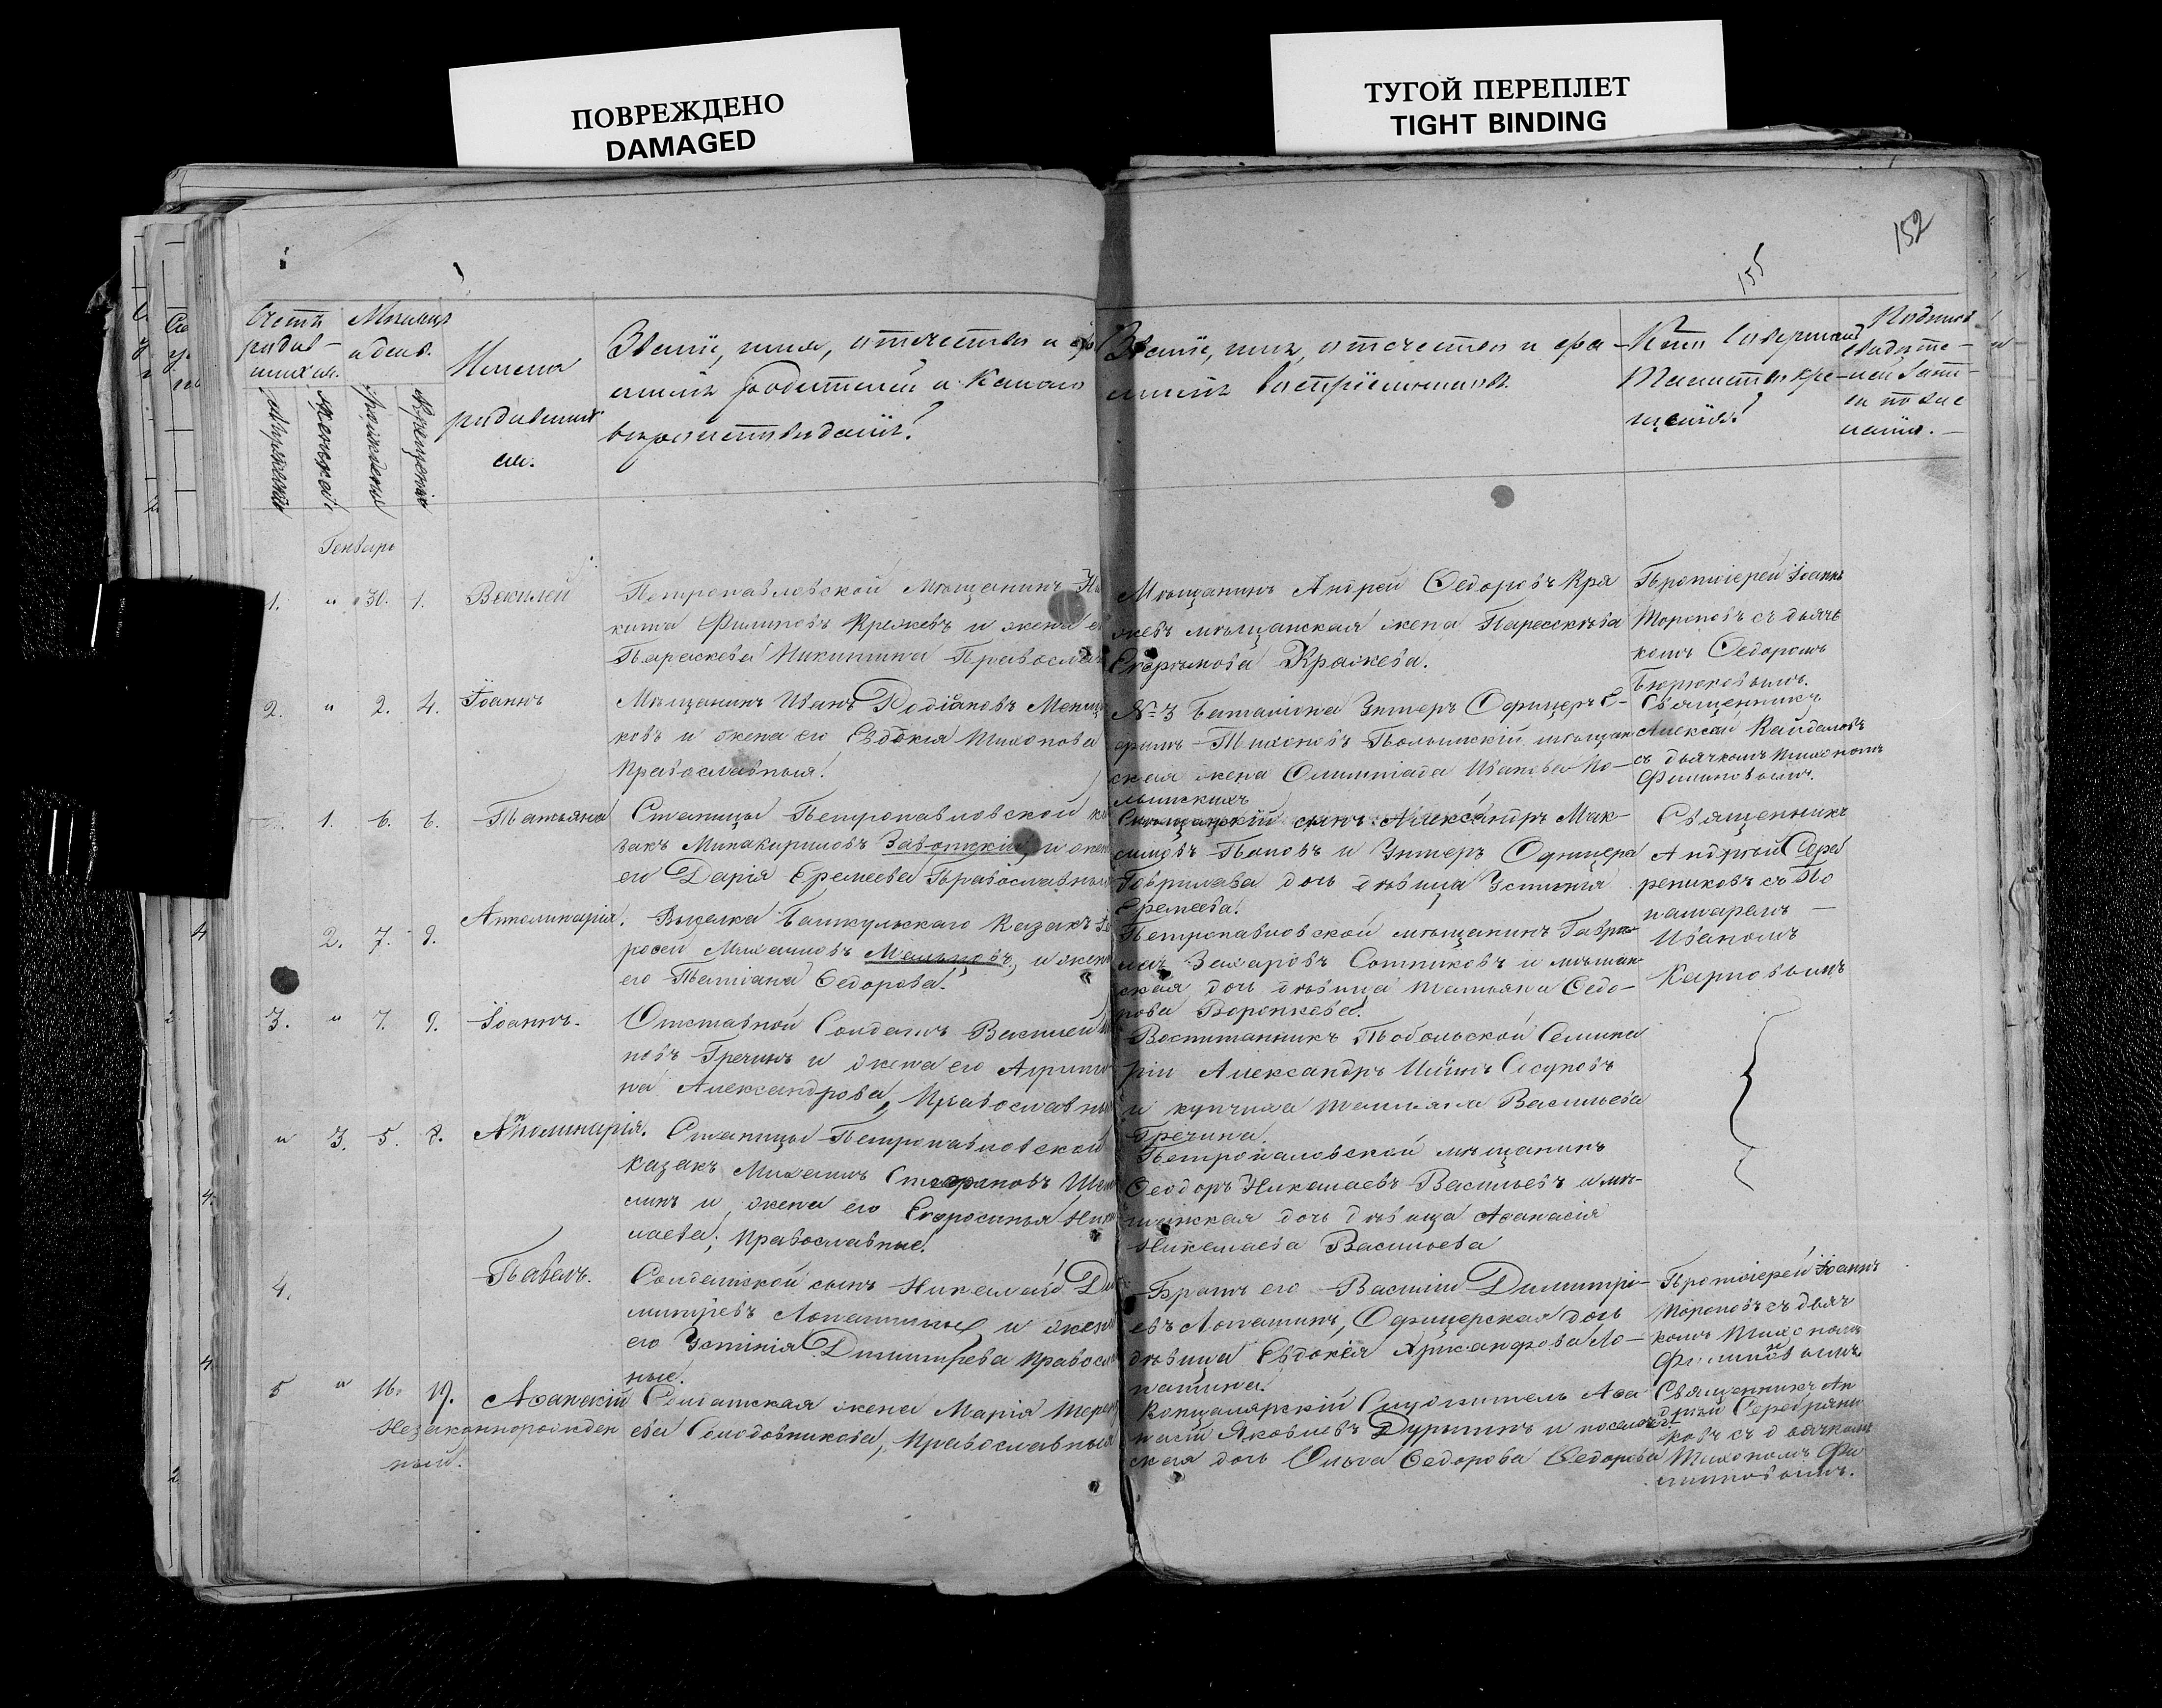 ПОВРЕЖДЕНО
DAMAGED
ТУГОЙ ПЕРЕПЛЕТ
TIGHT BINDING
152
155
Счетъ
родив-
шихся.
Мужеска
Женской
Месяцъ
и день.
рождения
крещенія
Имена
родивших
ся.
Званіе, имя, отчество и фа
милія родителей и какого
вероисповеданія?
Званіе, имя, отчество и фа-
милія воспріемниковъ.
Кто совершалъ
Таинство кре-
щенія?
Подпись
свидете-
лей
по же
ланію.
Генварь
1. " 30. 1. Василей
Петропавловской Мѣщанинъ Ни
кита Филиповъ Кряжевъ и жена е
Параскева Никитина Православ
Мѣщанинъ Андрей Федоровъ Кря
жевъ мѣщанская жена Парасскѣва
Кряжева.
Протоіерей Іоаннъ
Тороповъ съ дьячь
комъ Федоромъ
Бирюковымъ.
2. " 2. 4. Іоаннъ
Мѣщанинъ Иванъ Родіановъ Менщи
ковъ и жена его Евдокія Тихонова
Православныя.
№3 Баталіона Унтеръ Офицеръ Е-
фимъ Тихоновъ Полынскій мѣщан
ская жена Олимпіада Иванова По-
лынскихъ
Священникъ
Алексѣй Кайдаловъ
съ дьячкомъ Тихономъ
Филиповымъ.
1. 6. 6. Татьяна
Станицы Петропавловской ка
закъ Заводскій, и жена
его Дарія Еремеева Православныя
сынъ Александръ Мак-
симовъ Поповъ и Унтеръ Офицера
Гаврилова дочь дѣвица Устинья
Еремеева.
Священникъ
Андрей Сереб
рениковъ съ По
намаремъ
Иваномъ
Карповымъ
2. 7. 9. Апполинарія.
Выселка Башкульскаго Казакъ
Михаиловъ Мальцовъ, и жена
его Татіана Федорова.
Петропавловской мѣщанинъ Гаври
лъ Захаровъ Сотниковъ и мѣщан
ская дочь дѣвица Татьяна Федо-
рова Воронкева.
3. " 7. 9. Іоаннъ.
Отставной Солдатъ Василей
новъ Гречинъ и жена его Агрипи
на Александрова, Православныя
Воспитанникъ Тобольской Семина
ріи Александръ
и купчиха Татьяна Васильева
Гречина.
" 3. 5. 7. Аполинарія.
Станицы Петропавловской
казакъ Михаилъ Стефановъ
линъ и жена его Евфросинья Нико
лаева, Православные.
Петропаловской мѣщанинъ
Феодоръ Николаевъ Васильевъ и мѣ-
щанская дочь дѣвица Афанасія
Николаева Васильева
4. Павелъ.
Солдатской сынъ Николай Ди
митріевъ Лопатинъ и жена
его Устинія Димитріева Правосла
ные.
Братъ его Василій Димитрі-
евъ Лопатинъ, Офицерская дочь
дѣвица Евдокія Ло-
патина.
Протоіерей Іоаннъ
Тороповъ съ дьяч
комъ Тихономъ
Филиповымъ
5 " 16. 17. Афанасій
Незаконнорожден
ный.
Солдатская жена Марія Терен
ева Солодовникова, Православныя
Концалярскій Служитель Афа
насій Яковлевъ Дурынинъ и
ская дочь Ольга Федорова Федорова
Священникъ Ан
дрей Серебрени
ковъ съ дьячкомъ
Тихономъ Фи
липповымъ.